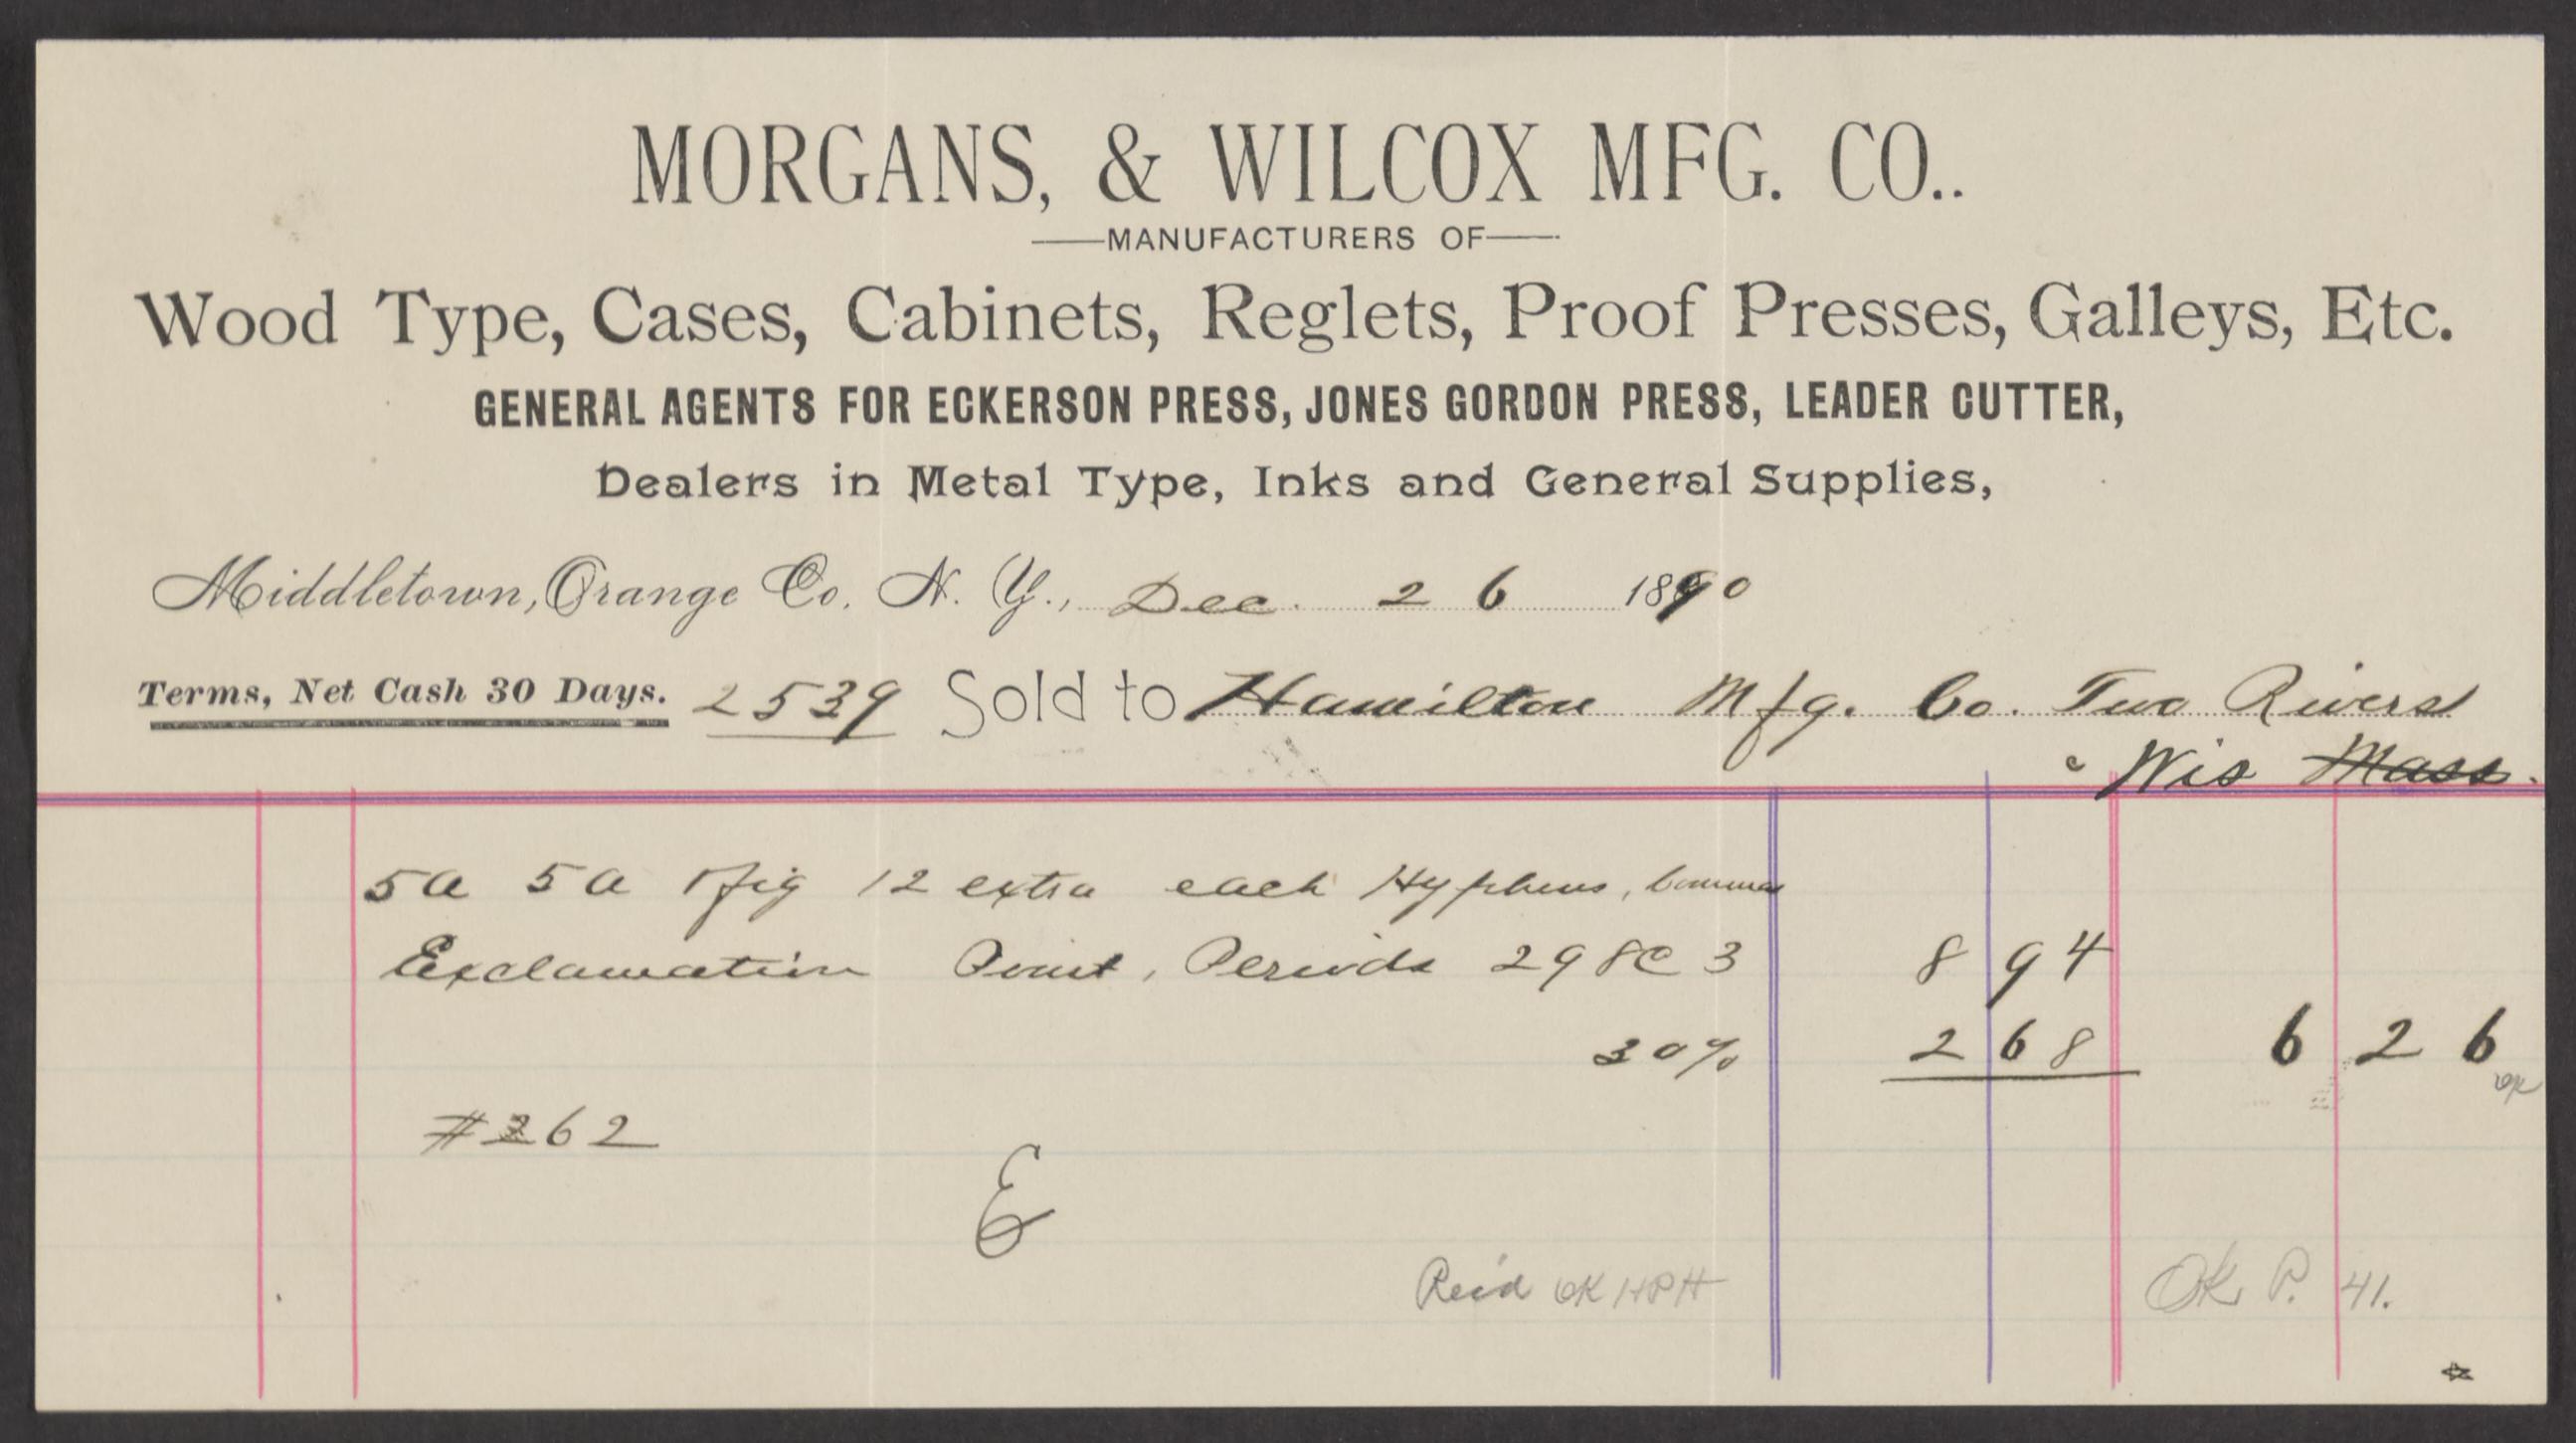 MORGANS, & WILCOX MFG. CO..
MANUFACTURERS OF
Wood Type, Cases, Cabinets, Reglets, Proof Presses, Galleys, Etc.
GENERAL AGENTS FOR ECKERSON PRESS, JONES GORDON PRESS, LEADER CUTTER,
Dealers in Metal Type, Inks and General Supplies,
Middletown, Orange Co. N. Y., Dec. 26 1890
Terms, Net Cash 30 Days. 2539 Sold to Hamilton Mfg. Co. Two Rivers
Wis Mass.
5a 5a fig 12 extra each Hyphens, Commas
Exclamation Point, Periods 298 C 3 8 94
30% 2 68 6 26
OK
#262
&
Rec'd OK HPH OK P. 41.